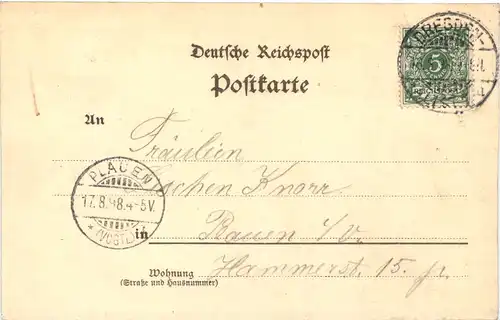 DRESDEN-
5
Deutsche Reichspost
Postkarte
An
Fräulein
schen Knorr
PLAUEN
17.8.98.4-5V.
* (VOGTL)
in
Plauen i/V.
Wohnung
Hammerst. 15. p.
(Straße und Hausnummer)